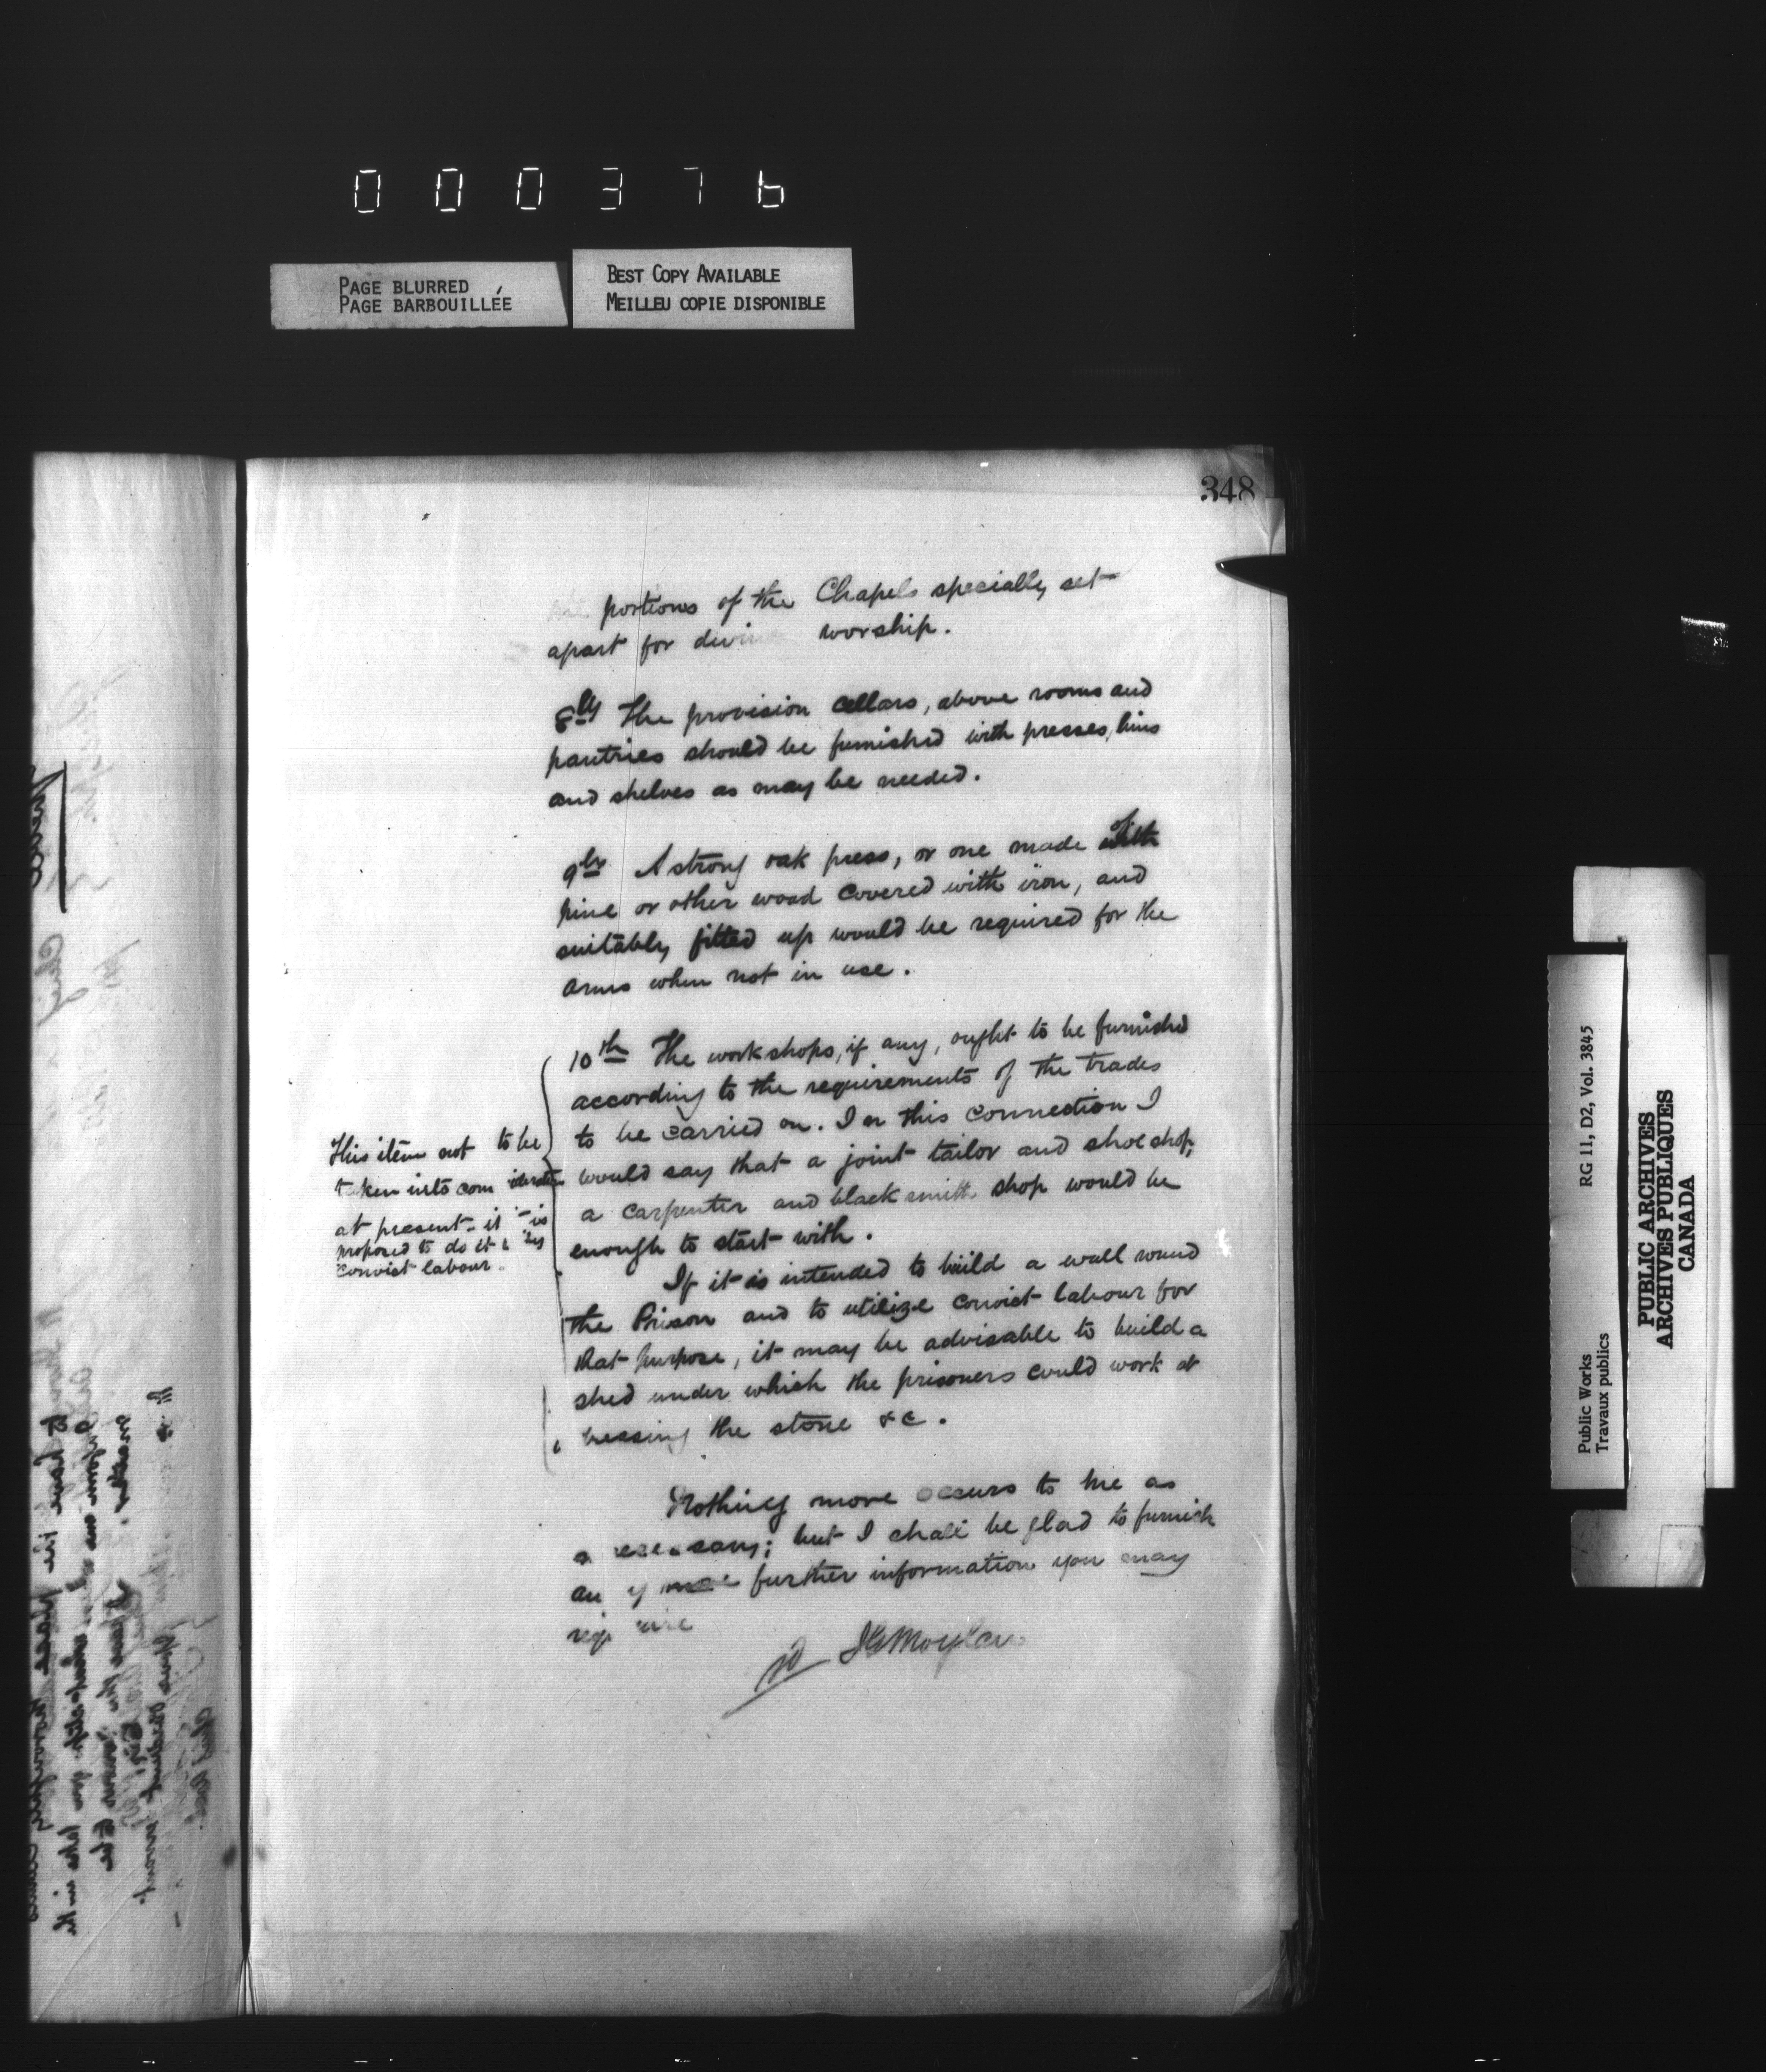 000376
PAGE BLURRED
PAGE BARBOUILLÉE
BEST COPY AVAILABLE
MEILLEU COPIE DISPONIBLE
348
portions of the Chapels specially set
apart for divine worship.
8ly The provision cellars, above rooms and
pantries should be furnished with presses, bins
and shelves as may be needed.
9ly A strong oak press, or one made of
pine or other wood covered with iron, and
suitably fitted up would be required for the
arms when not in use.
10th The workshops, if any, ought to be furnished
according to the requirements of the trades
to be carried on. In this connection I
would say that a joint tailor and shoe shop,
a carpenter and blacksmith shop would be
enough to start with.
This item not to be
taken into consideration
at present - it is
proposed to do it by
convict labour.
If it is intended to build a wall round
the Prison and to utilize convict labour for
that purpose, it may be advisable to build a
shed under which the prisoners could work at
dressing the stone &c.
Nothing more occurs to me as
necessary; but I shall be glad to furnish
any further information you may
require
JG Moylan
Public Works
Travaux publics
RG 11, D2, Vol. 3845
PUBLIC ARCHIVES
ARCHIVES PUBLIQUES
CANADA